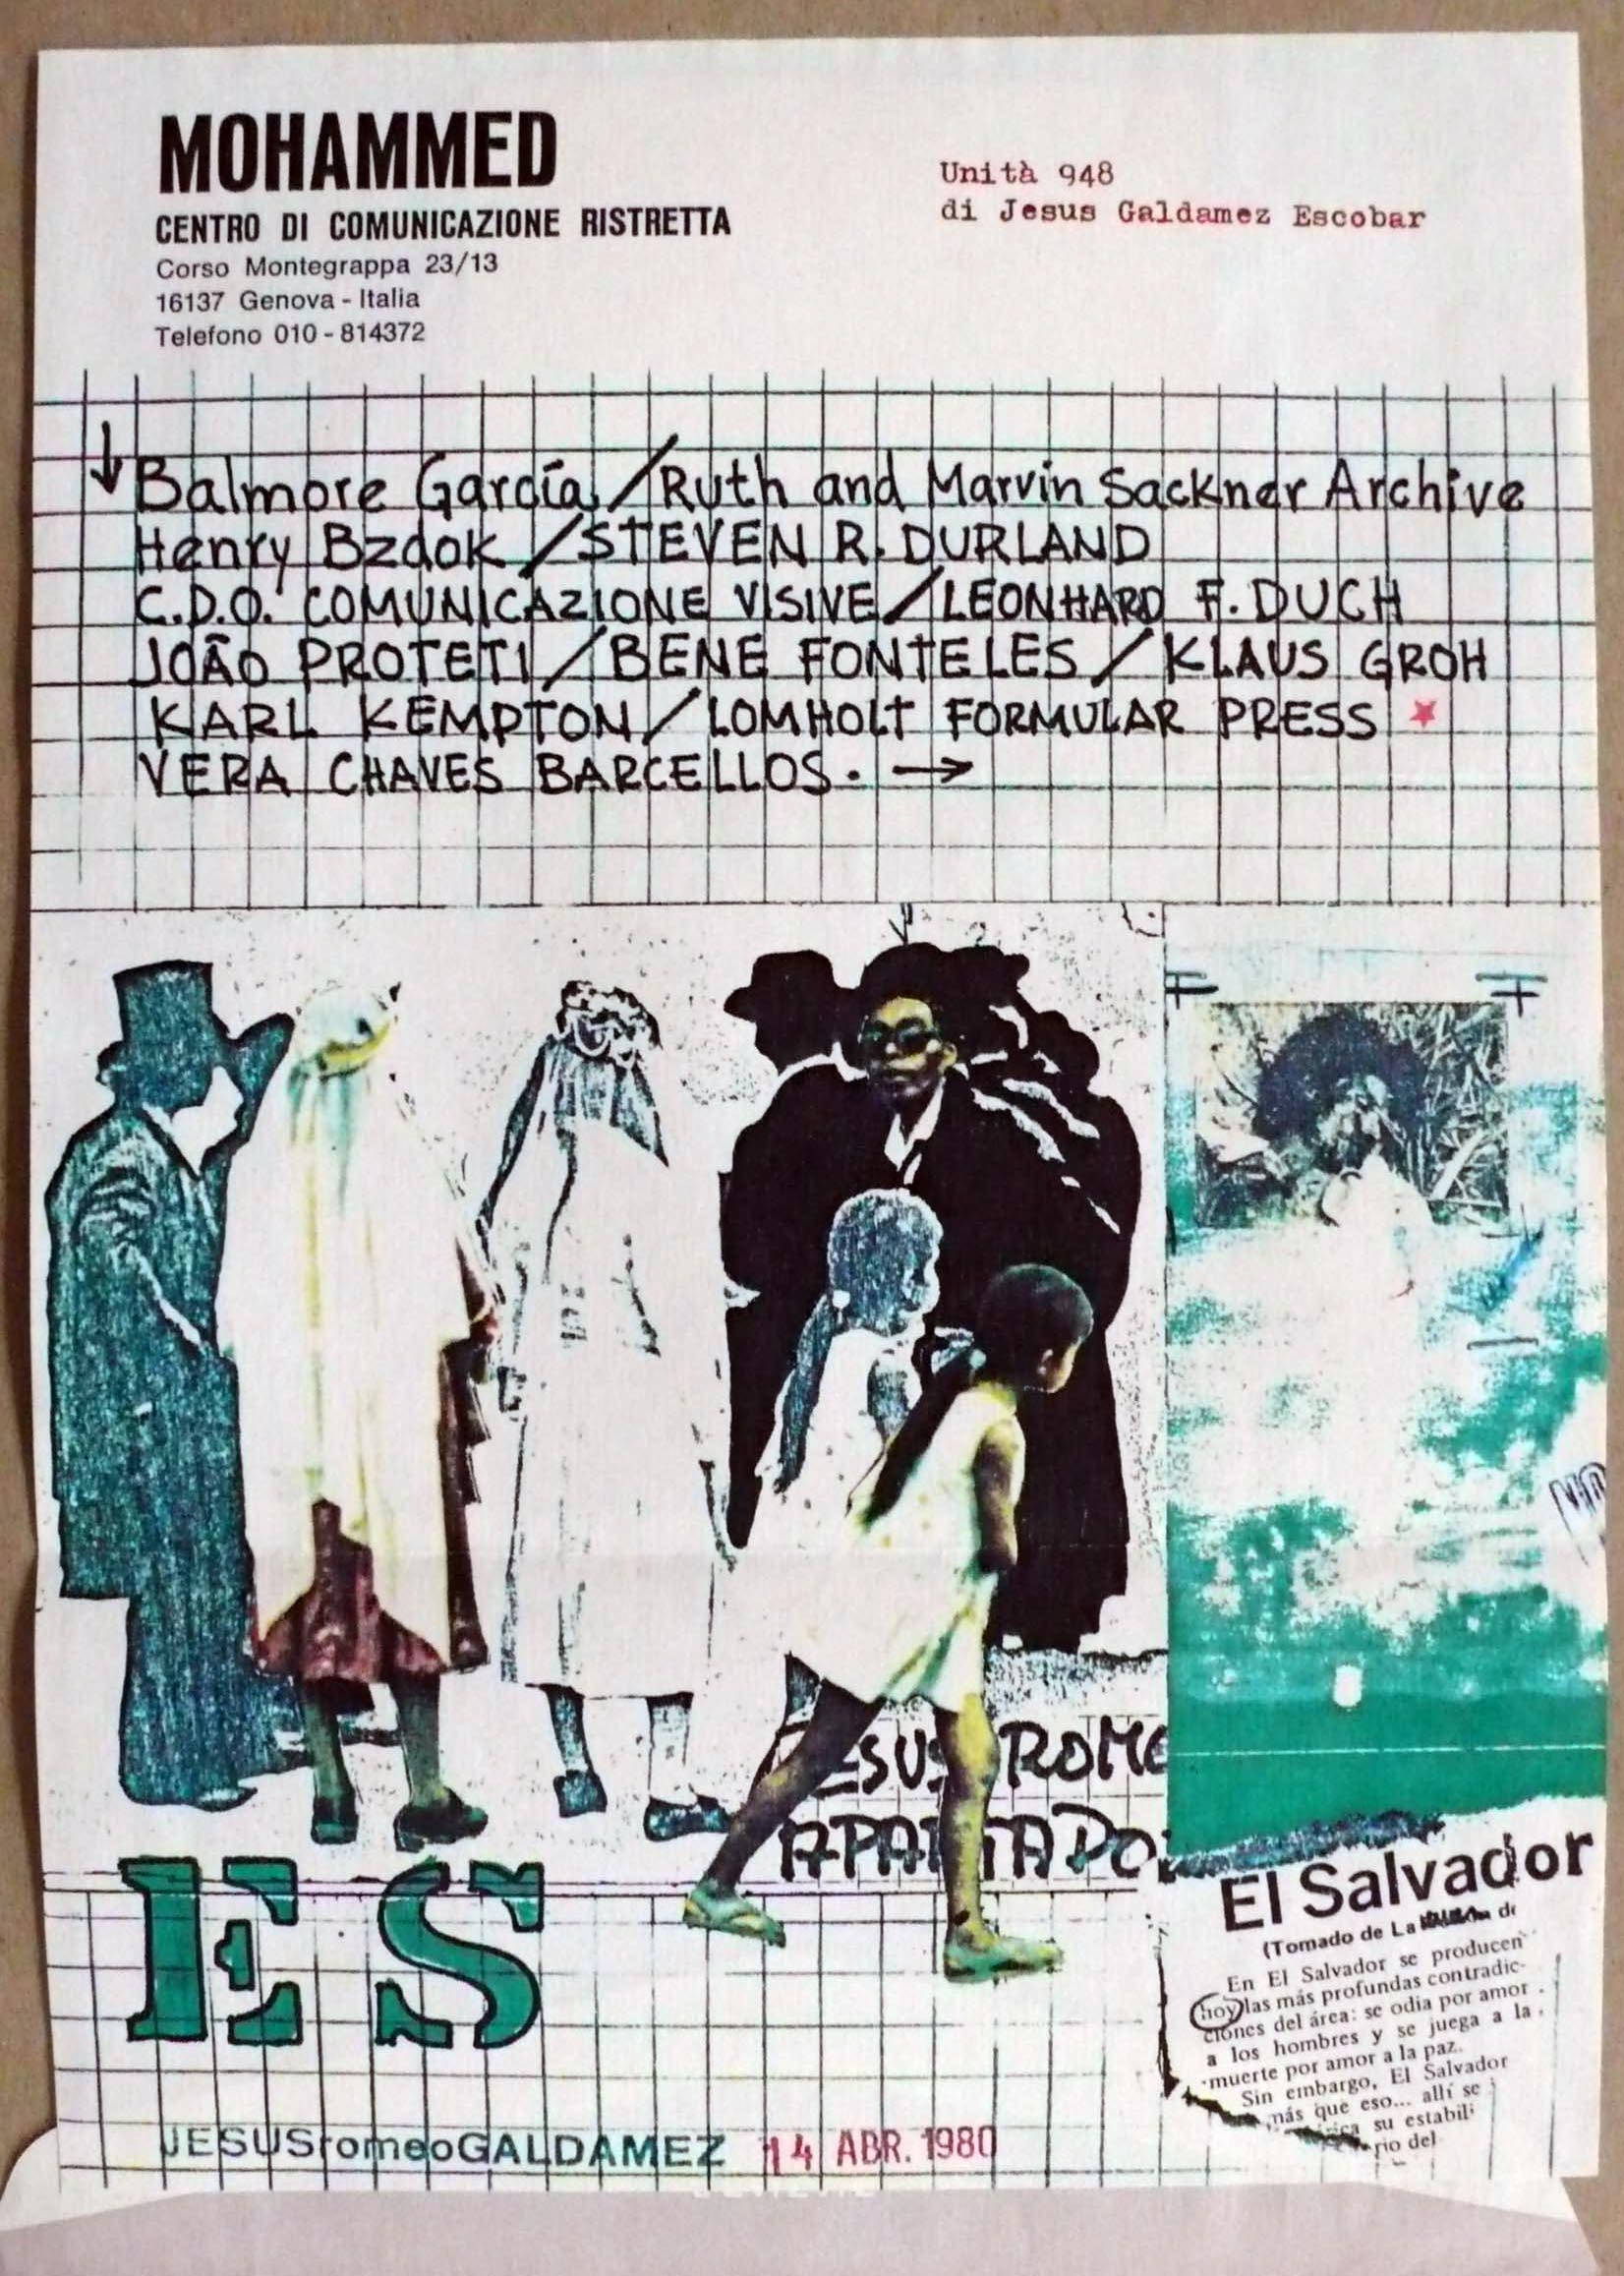 MOHAMMED
CENTRO DI COMUNICAZIONE RISTRETTA
Corso Montegrappa 23/13
16137 Genova - Italia
Telefono 010 - 814372
Unità 948
di Jesus Galdamez Escobar
↓ Balmore García / Ruth and Marvin Sackner Archive
Henry Bzdok / STEVEN R. DURLAND
C.D.O. COMUNICAZIONE VISIVE / LEONHARD F. DUCH
JOÃO PROTETI / BENE FONTELES / KLAUS GROH
KARL KEMPTON / LOMHOLT FORMULAR PRESS ★
VERA CHAVES BARCELLOS. →
ESUS ROME
APARTADO
ES
El Salvador
(Tomado de La
En El Salvador se producen
hoy las más profundas contradic-
ciones del área: se odia por amor
a los hombres y se juega a la
muerte por amor a la paz.
Sin embargo, El Salvador
más que eso... allí se
su estabili
rio del
JESUSromeoGALDAMEZ 14 ABR. 1980